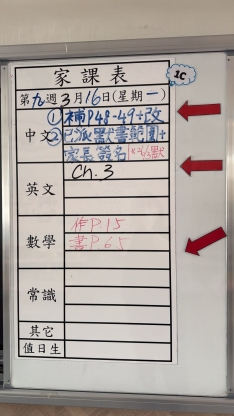 家課表
1C
第九週3月16日(星期一)
中文
①補P48-49+改
②已派默書範圍+
家長簽名
英文
Ch.3
數學
作P15
書P65
常識
其它
值日生